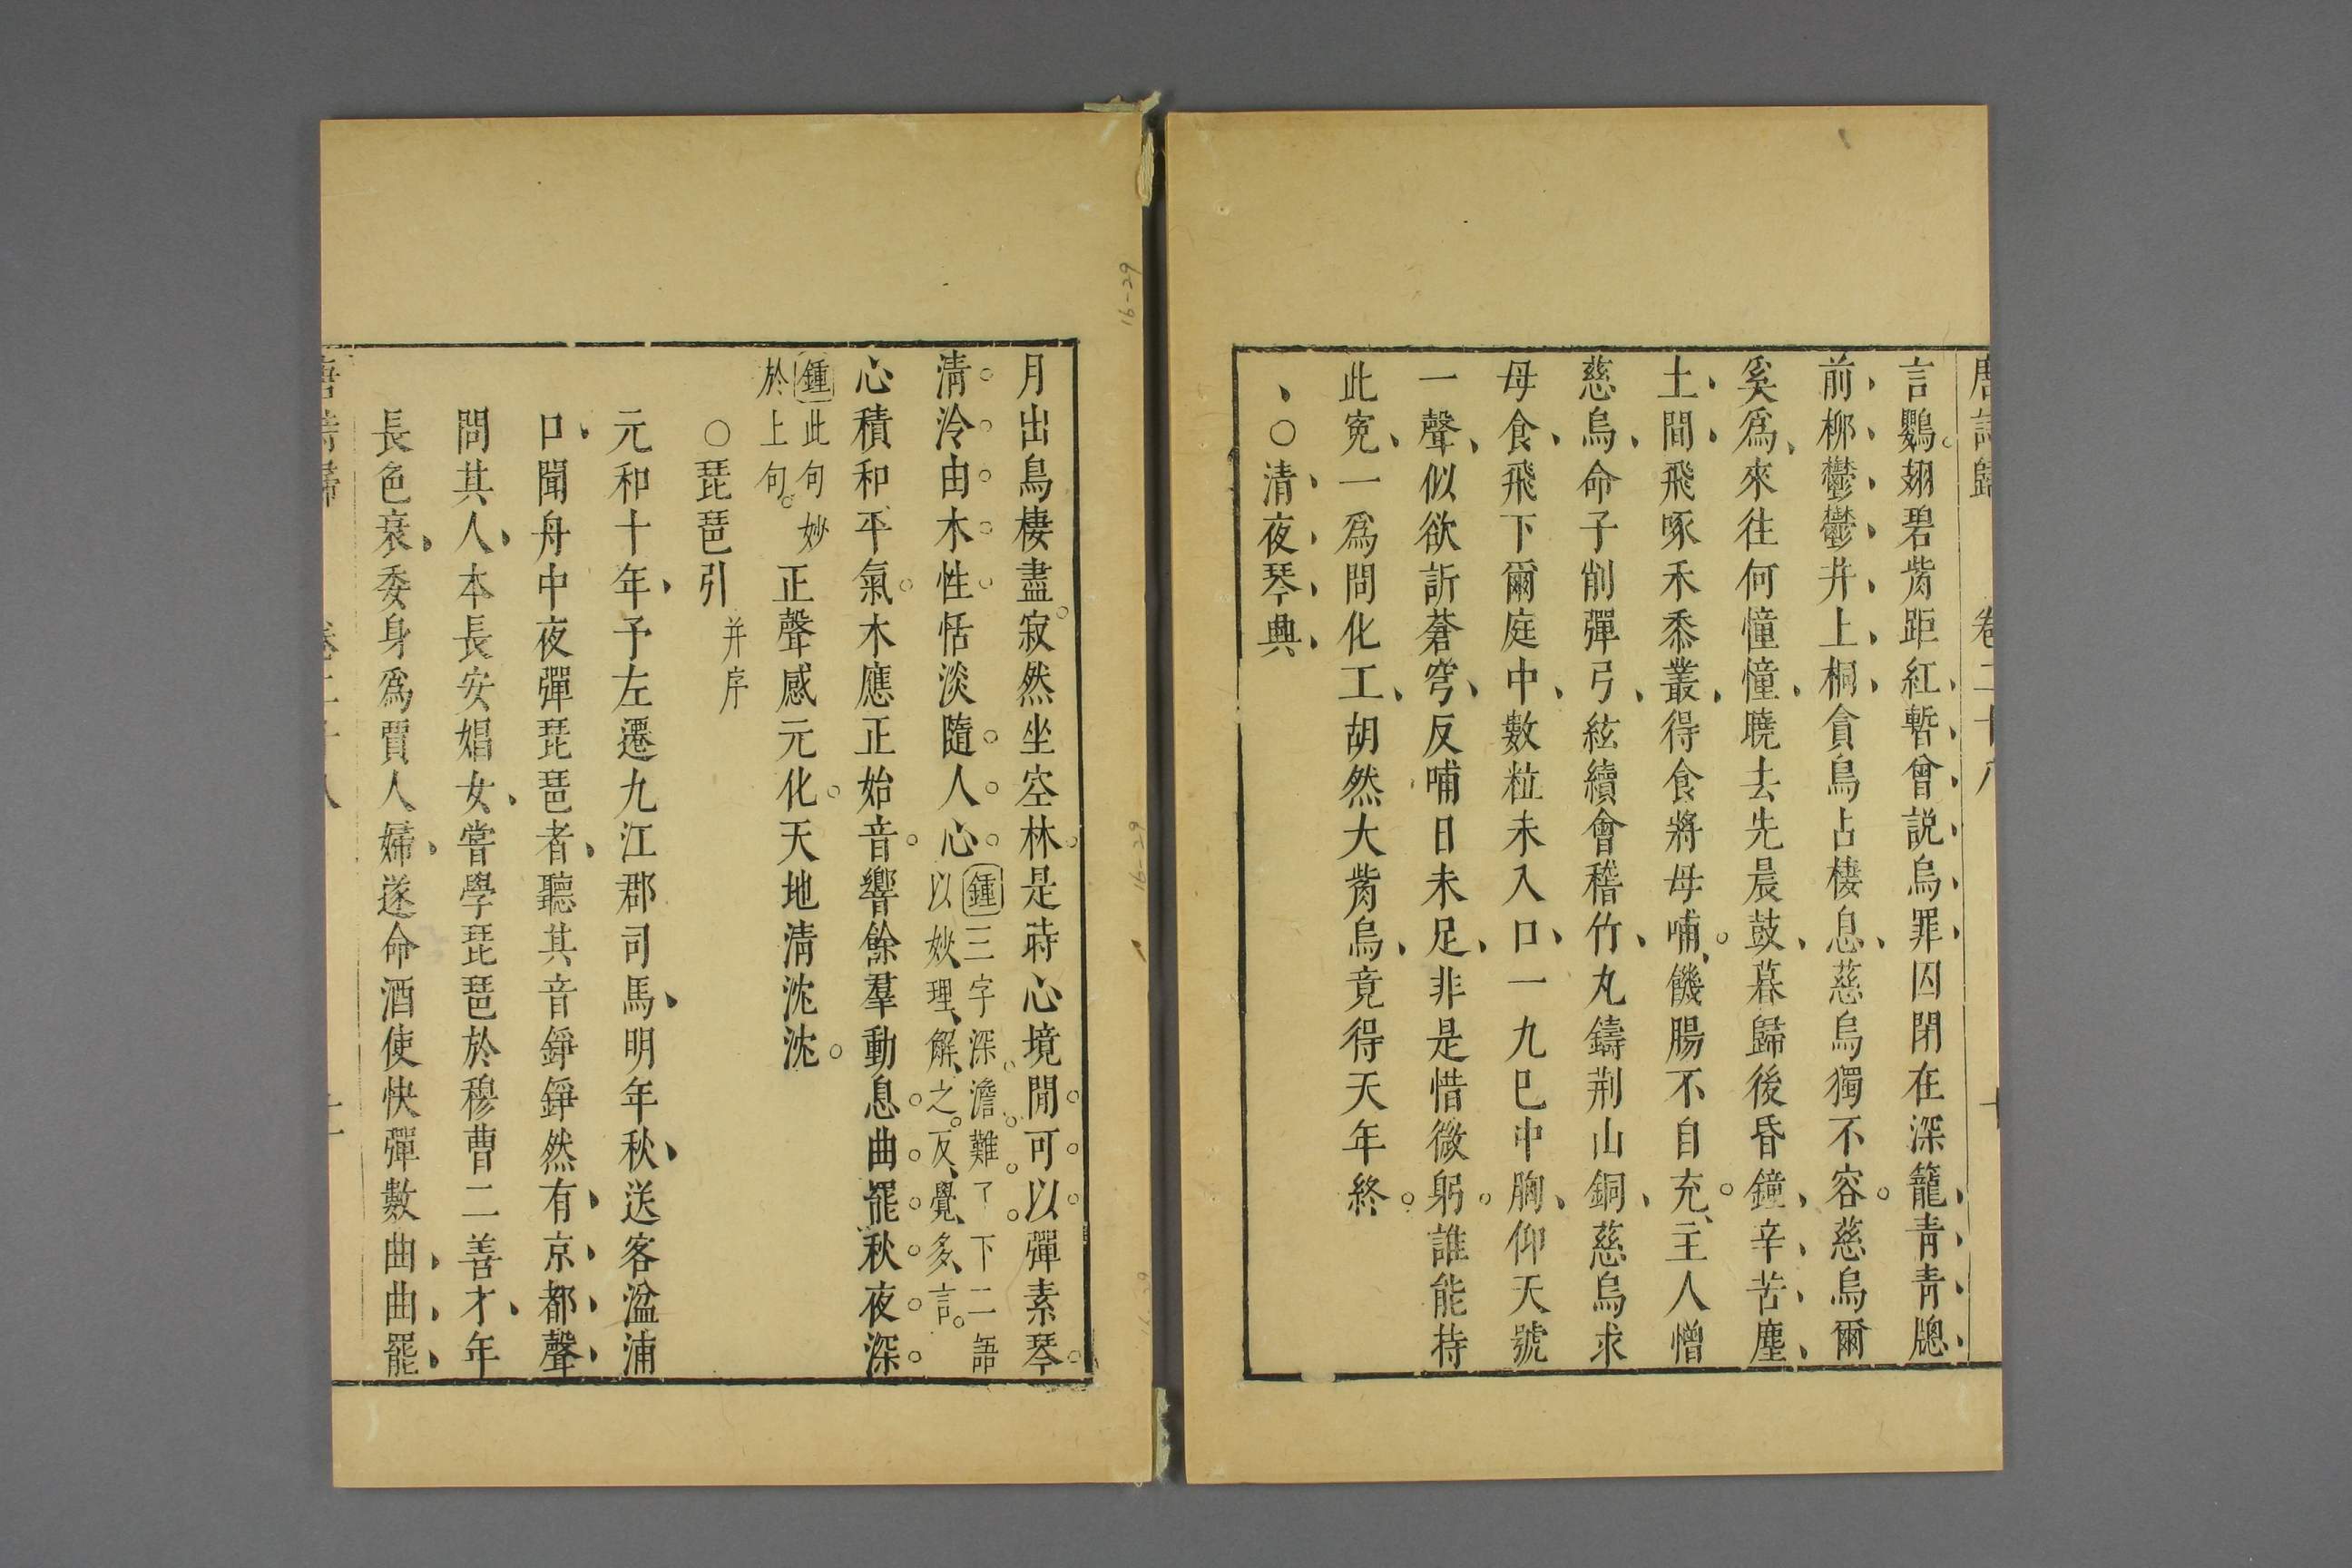 唐詩歸 卷二十八 十
言鸚翅碧觜距紅暫曾說烏罪囚閉在深籠青青牕
前柳鬱鬱井上桐貪烏占棲息慈烏獨不容慈烏爾
奚爲來往何憧憧曉去先晨鼓暮歸後昏鐘辛苦塵
土間飛啄禾黍叢得食將母哺饑腸不自充主人憎
慈烏命子削彈弓絃續會稽竹丸鑄荆山銅慈烏求
母食飛下爾庭中數粒未入口一九巳中胸仰天號
一聲似欲訴蒼穹反哺日未足非是惜微躬誰能持
此寃一爲問化工胡然大觜烏竟得天年終
○清夜琴典
月出鳥棲盡寂然坐空林是時心境閒可以彈素琴
清泠由木性恬淡隨人心鍾三字深澹難了下二語
以妙理解之反覺多言
心積和平氣木應正始音響餘羣動息曲罷秋夜深
鍾此句妙
於上句
正聲感元化天地清沈沈
○琵琶引并序
元和十年予左遷九江郡司馬明年秋送客湓浦
口聞舟中夜彈琵琶者聽其音錚錚然有京都聲
問其人本長安娼女嘗學琵琶於穆曹二善才年
長色衰委身爲賈人婦遂命酒使快彈數曲曲罷
唐詩歸 卷二十八 十一